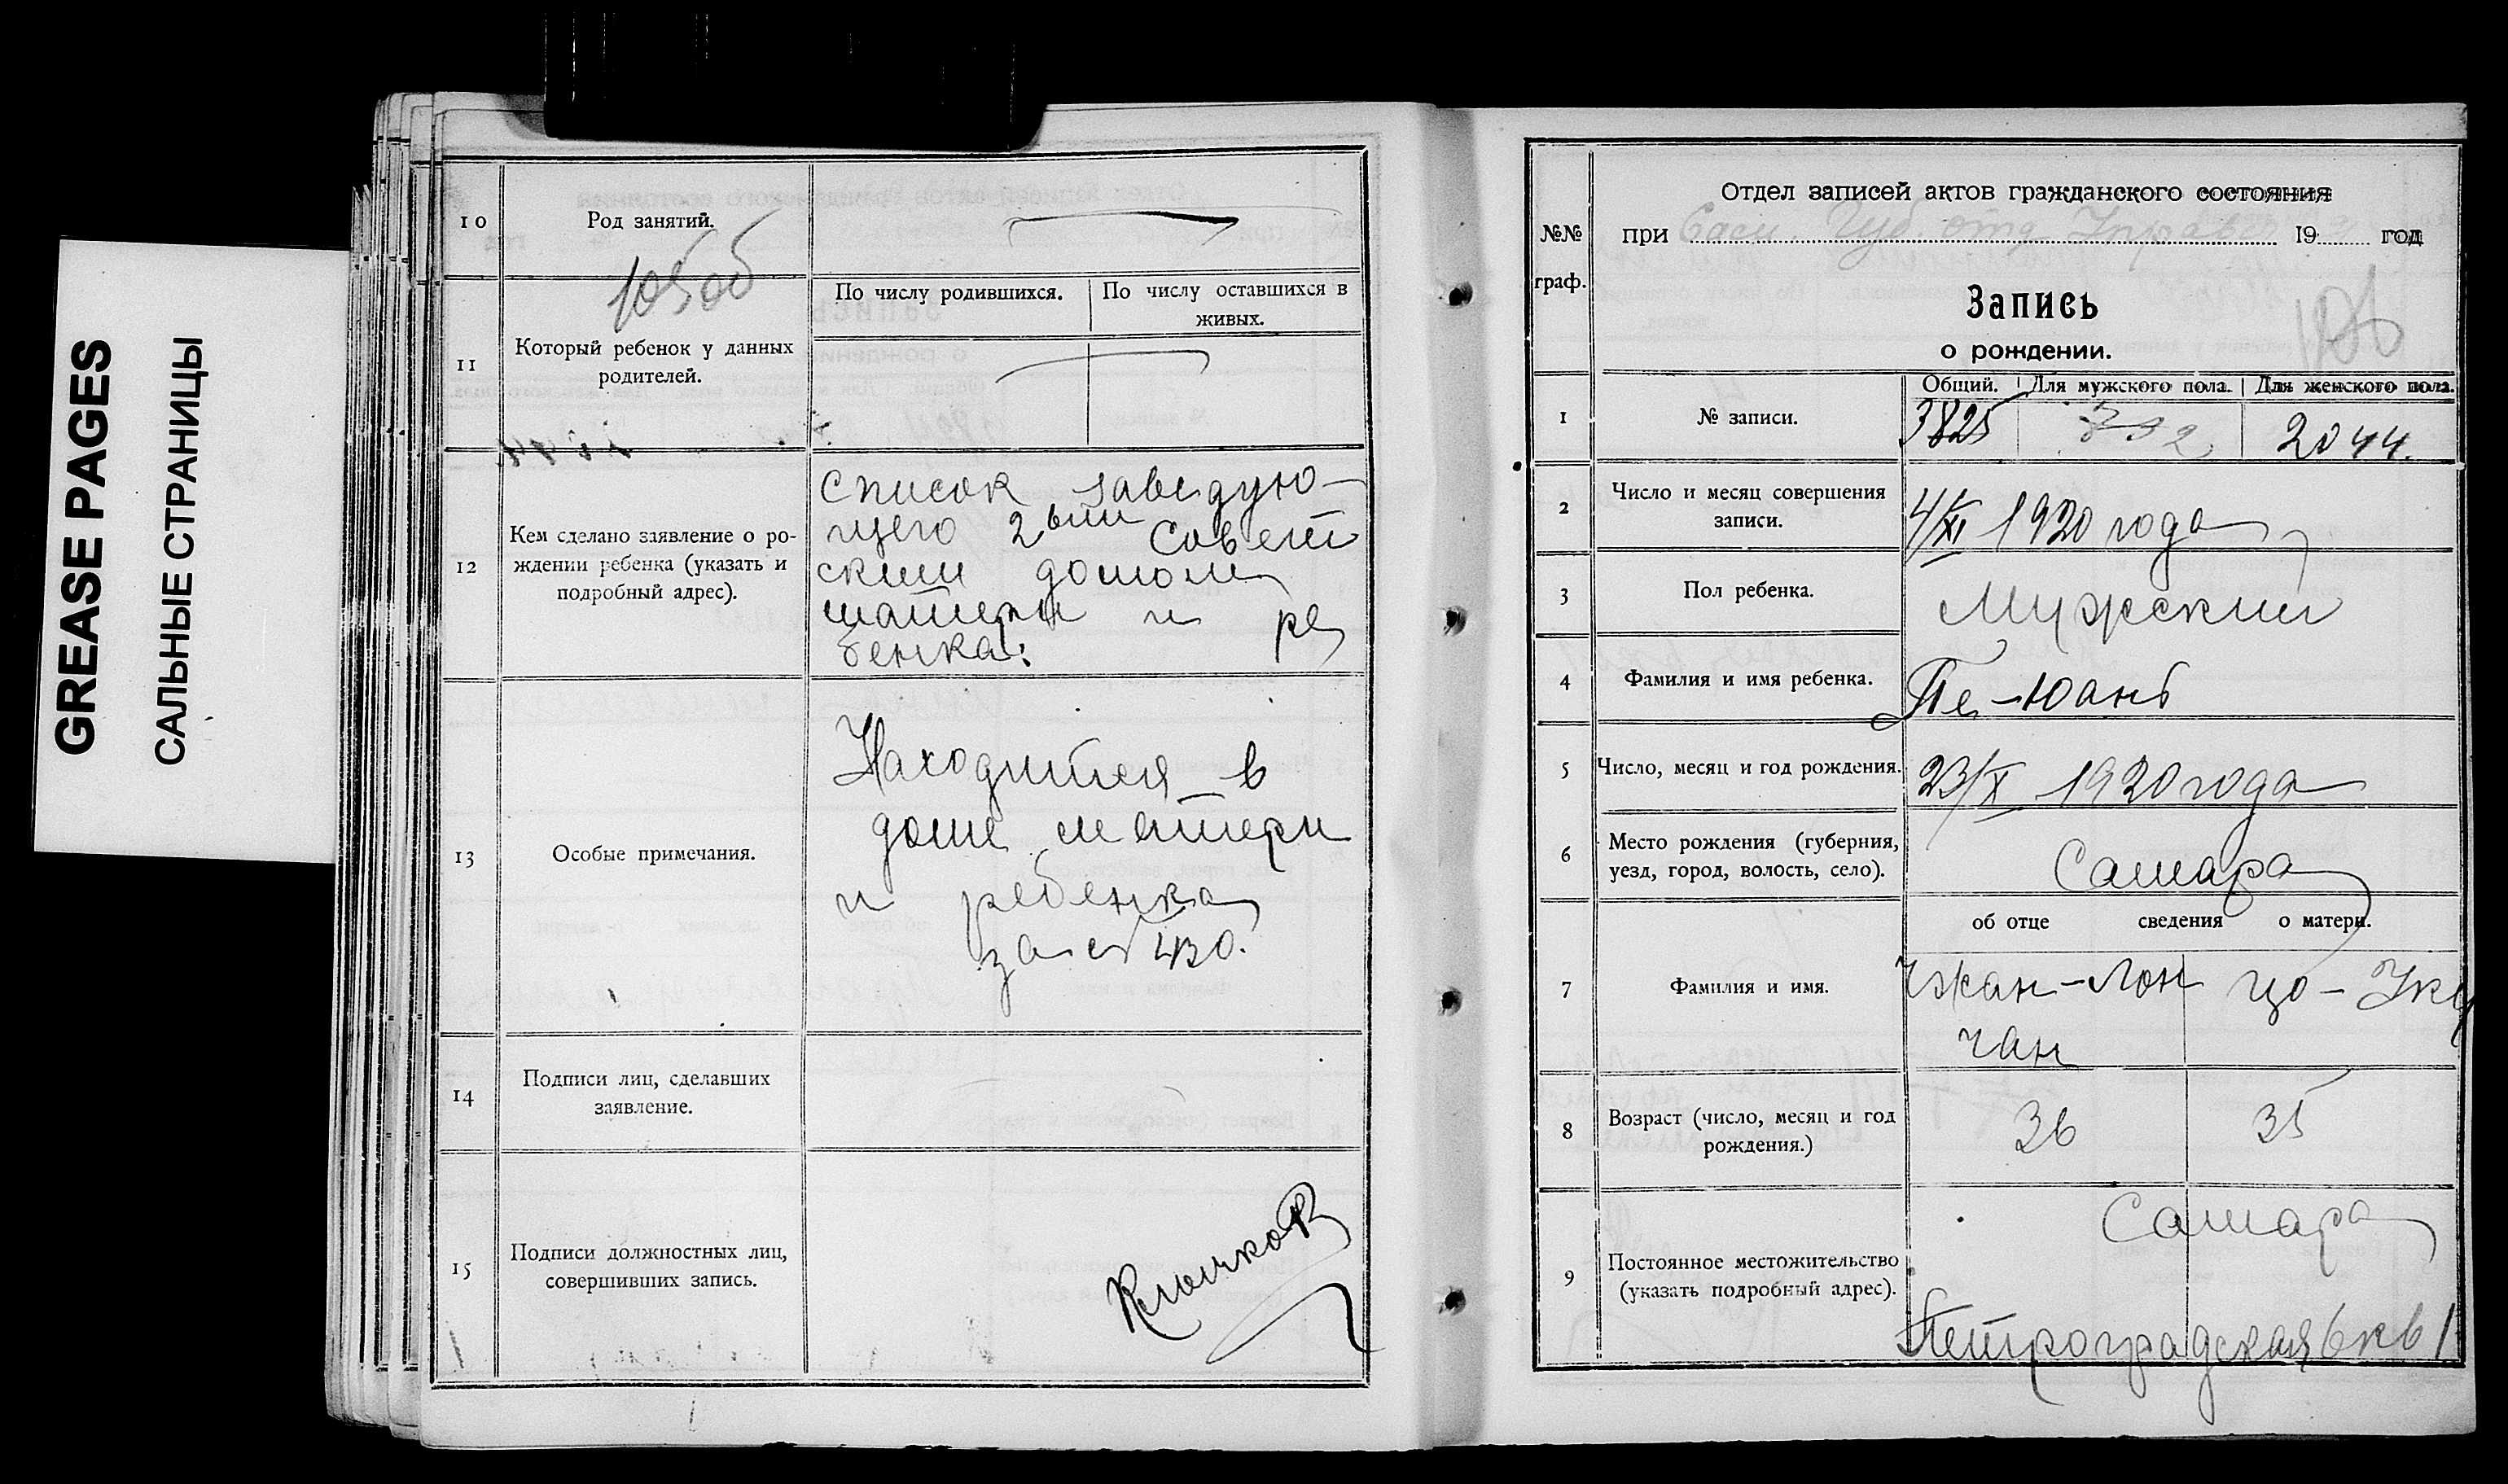 GREASE PAGES
САЛЬНЫЕ СТРАНИЦЫ
10
Род занятий.
11
Который ребенок у данных
родителей.
По числу родившихся.
По числу оставшихся в
живых.
12
Кем сделано заявление о ро-
ждении ребенка (указать и
подробный адрес).
Список заведую-
щего 2ым Совет
ским домом
матери и ре
бенка.
13
Особые примечания.
Находится в
доме матери
и ребенка
за № 430.
14
Подписи лиц, сделавших
заявление.
15
Подписи должностных лиц,
совершивших запись.
Клочков
№№
граф.
Отдел записей актов гражданского состояния
при Сам. Губ. отд. Управ 19 год
Запись
о рождении.
1
№ записи.
Общий.
Для мужского пола.
Для женского пола.
3825
2044.
2
Число и месяц совершения
записи.
4/XI 1920 года
3
Пол ребенка.
Мужский
4
Фамилия и имя ребенка.
Пе-Юань
5
Число, месяц и год рождения.
23/X 1920 года
6
Место рождения (губерния,
уезд, город, волость, село).
Самара
об отце сведения о матери.
7
Фамилия и имя.
Чжан-Лон
чан
цо-
8
Возраст (число, месяц и год
рождения.)
36
35
9
Постоянное местожительство
(указать подробный адрес).
Самара
Петроградская 6 кв 1